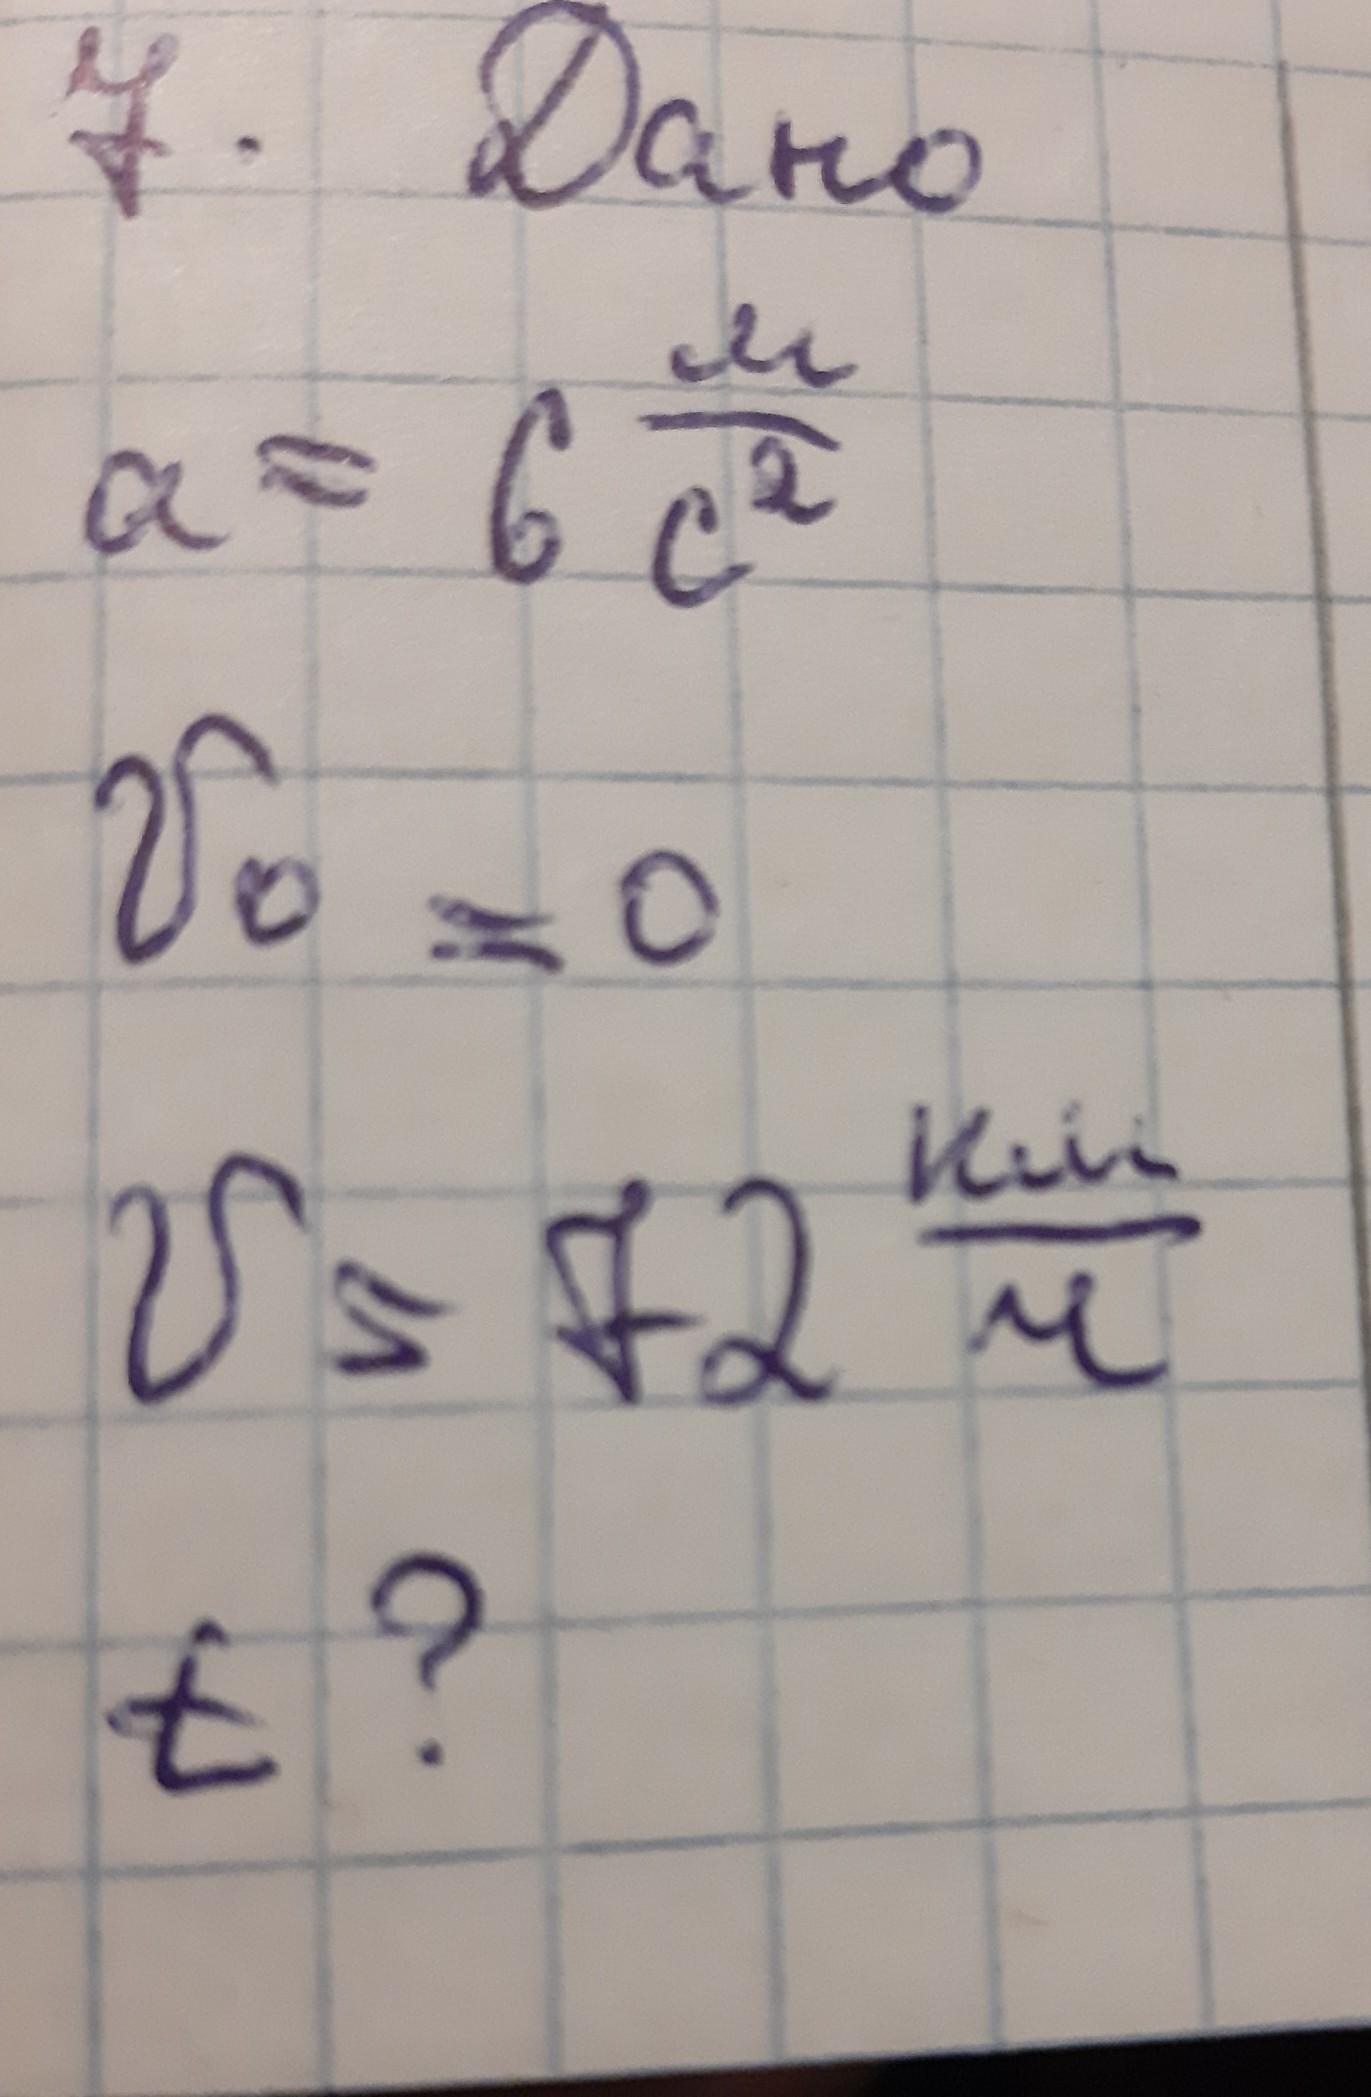 7. Дано
a = 6 м/с²
V₀ = 0
V = 72 км/ч
t ?